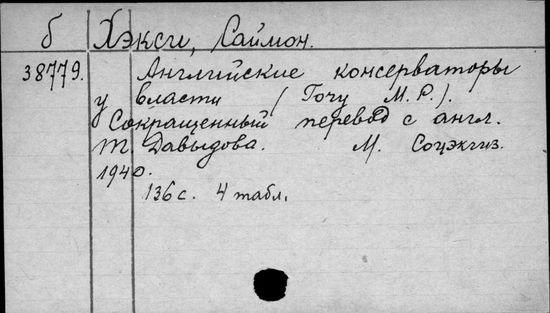 б Хэкси, Саймон.
38779. Английские консерваторы
у власти (Тоry M. P.).
Сокращенный перевод с англ.
т. Давыдова. М. Соцэкгиз.
1940.
136 с. 4 табл.